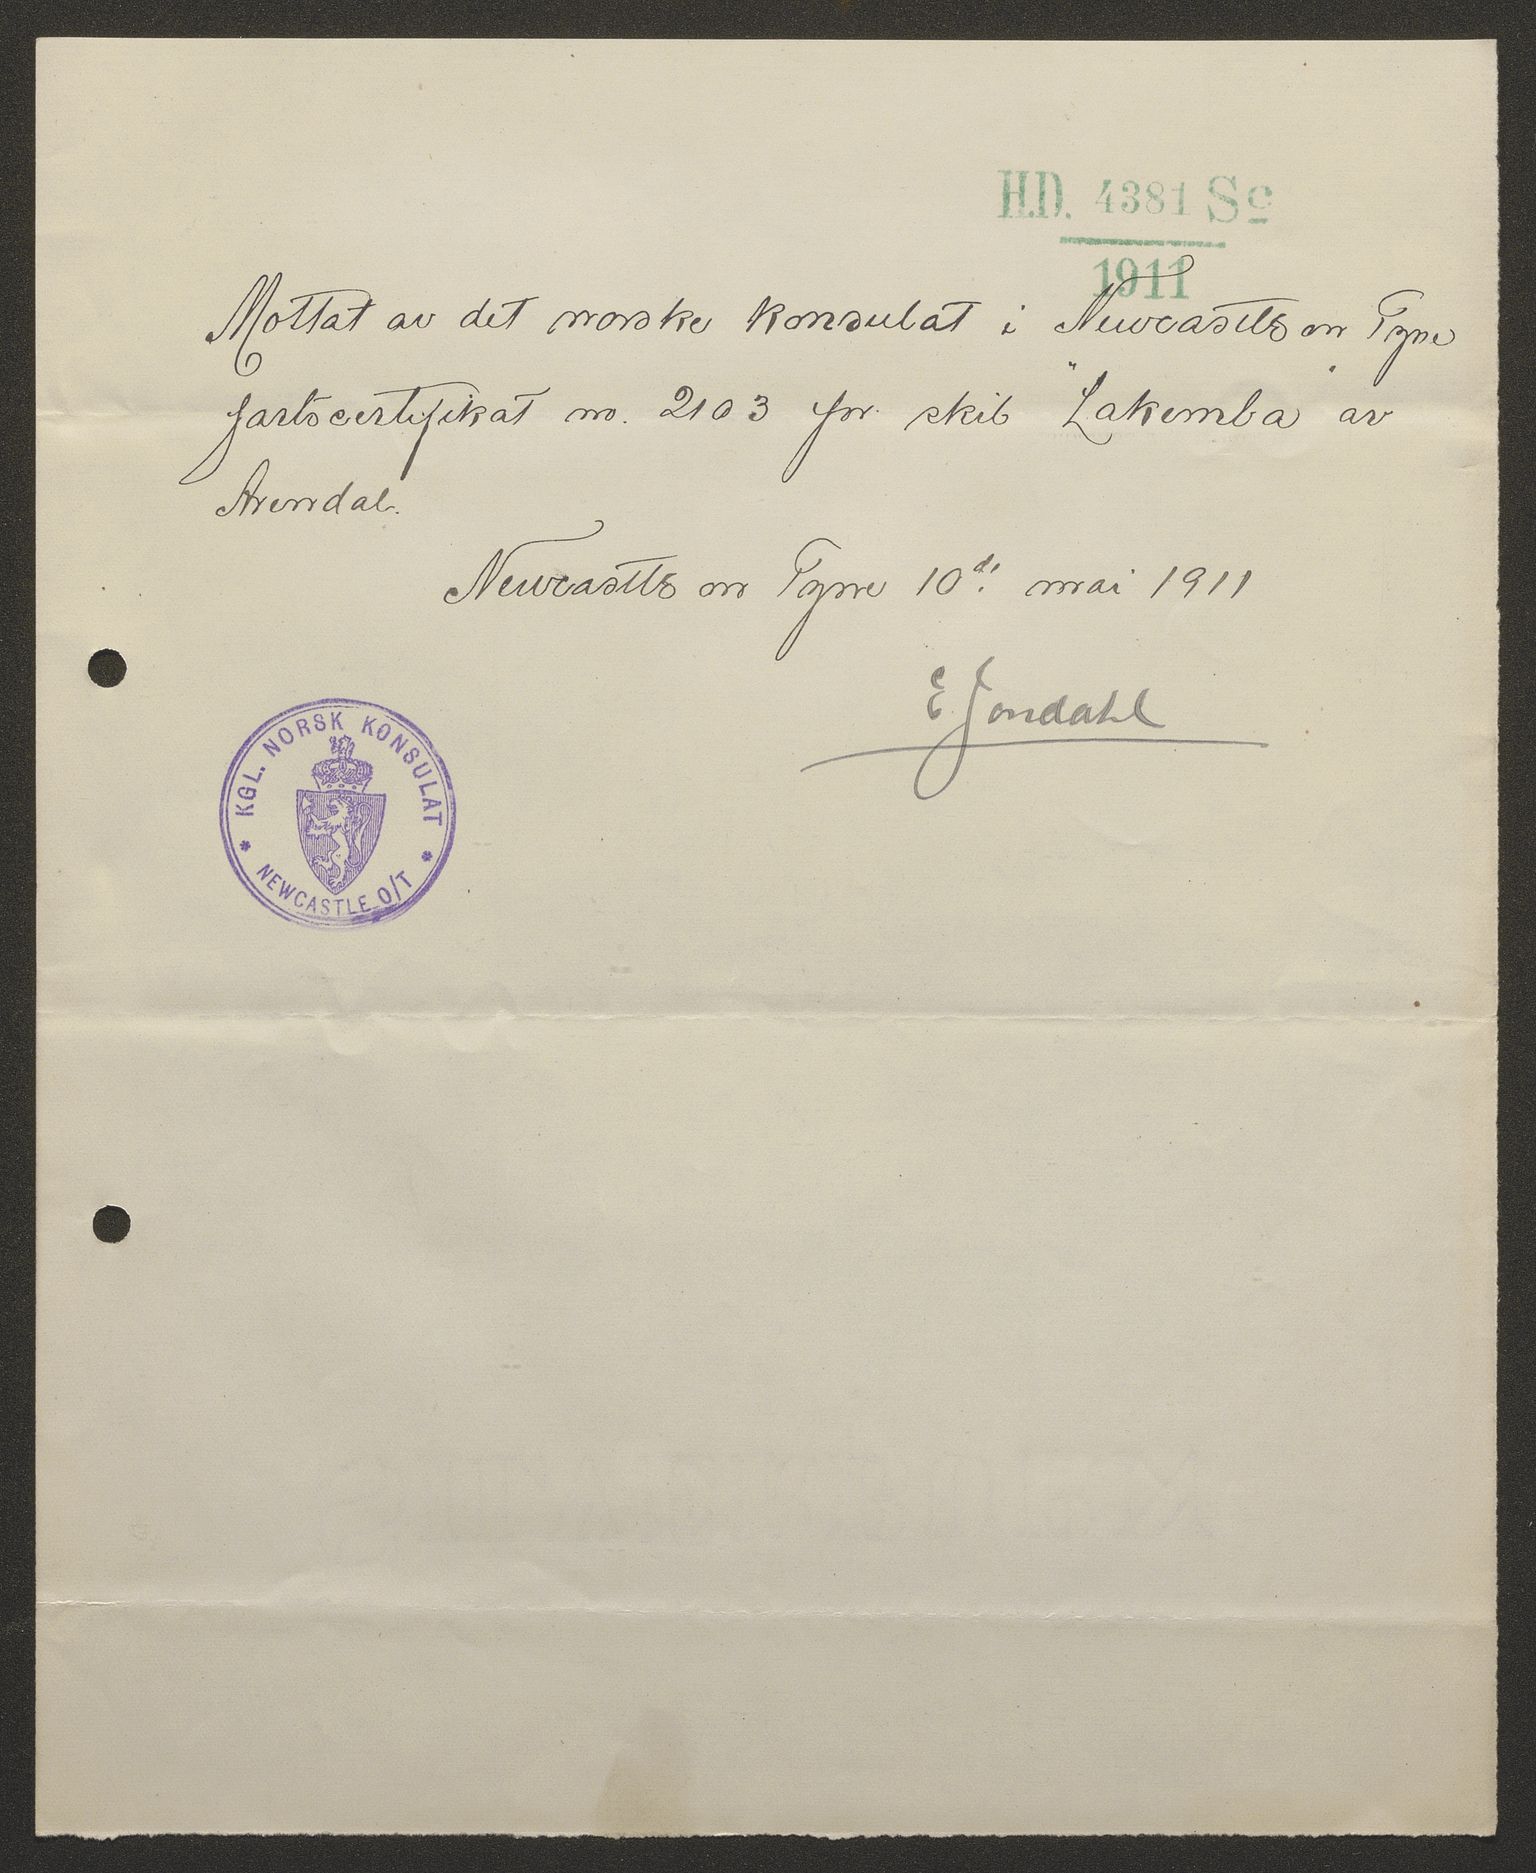 H.D. 4381 Sc
1911
Mottat av det norske konsulat i Newcastle on Tyne
fartscertifikat no. 2103 for skib "Lakemba" av
Arendal.
Newcastle on Tyne 10de mai 1911
E Jondahl
KGL. NORSK KONSULAT
* NEWCASTLE O/T *